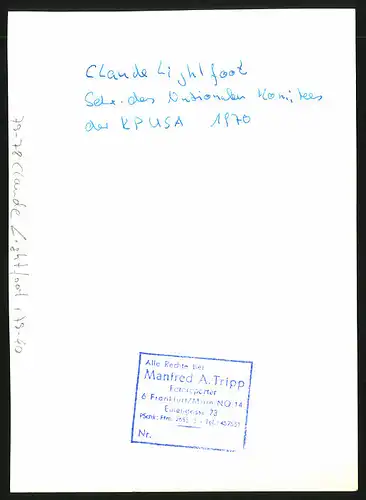 Claude Lightfoot
Sekr. des Nationalen Komitees
der KP USA 1970
Claude Lightfoot
Alle Rechte bei
Manfred A. Tripp
Fotoreporter
6 Frankfurt/Main NO 14
73
Nr.